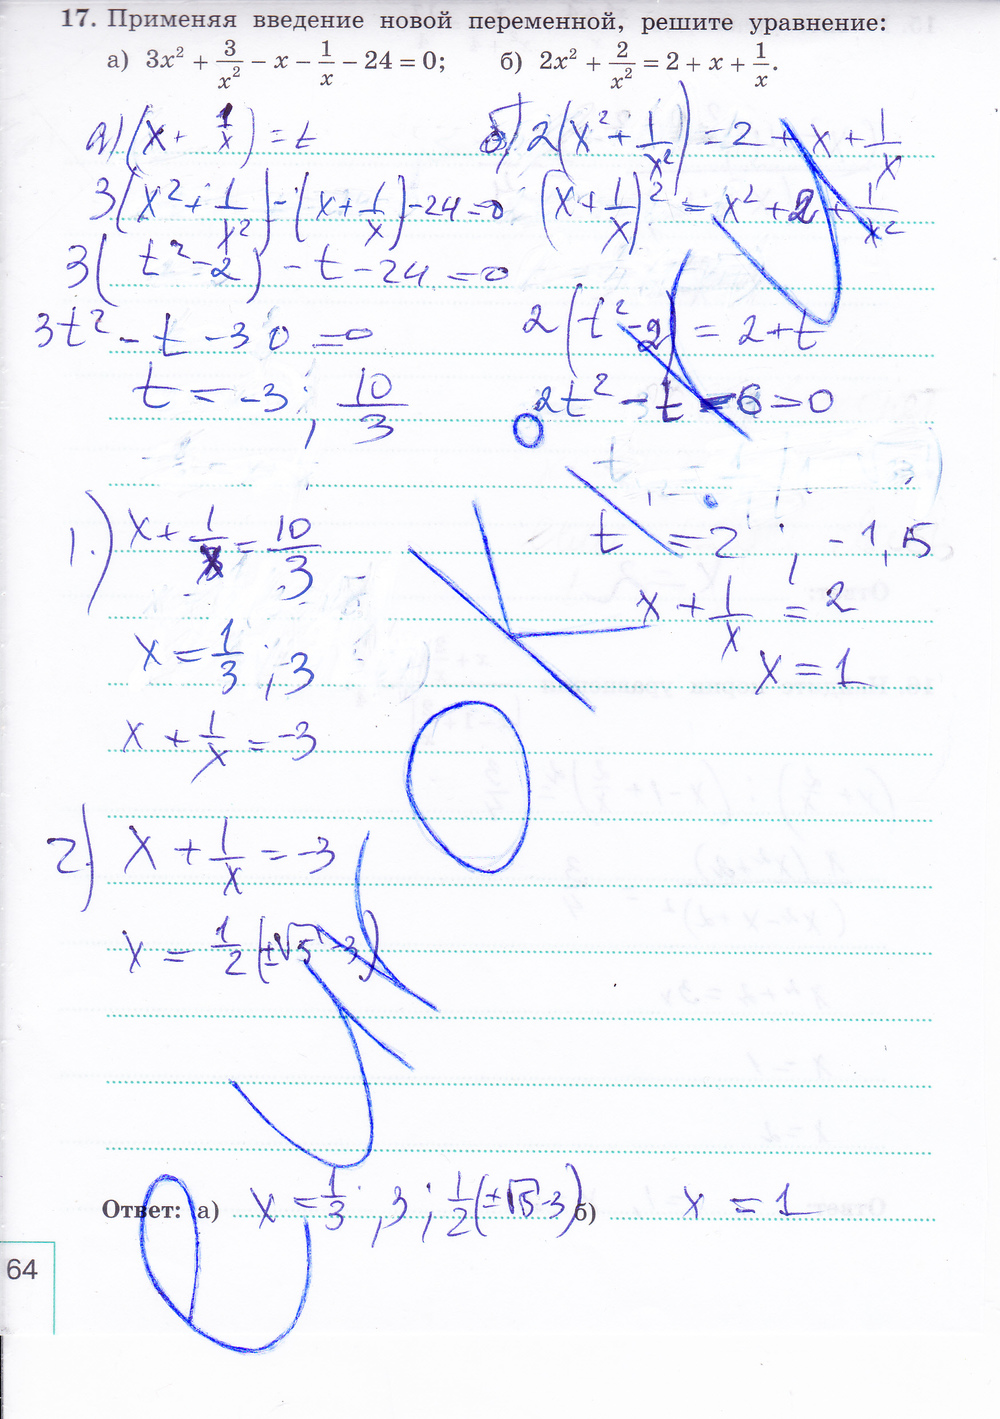 17. Применяя введение новой переменной, решите уравнение:
а) 3x² + 3/x² − x − 1/x − 24 = 0; б) 2x² + 2/x² = 2 + x + 1/x.
а) (x + 1/x) = t
3(x² + 1/x²) − (x + 1/x) − 24 = 0
3(t² − 2) − t − 24 = 0
3t² − t − 30 = 0
t = −3; 10/3
1.) x + 1/x = 10/3
x = 1/3; 3
x + 1/x = −3
2) x + 1/x = −3
x = 1/2 (±√5 − 3)
б) 2(x² + 1/x²) = 2 + x + 1/x
(x + 1/x)² = x² + 2 + 1/x²
2(t² − 2) = 2 + t
2t² − t − 6 = 0
t = 2; −1,5
x + 1/x = 2
x = 1
Ответ: а) x = 1/3; 3; 1/2 (±√5 − 3) б) x = 1
64